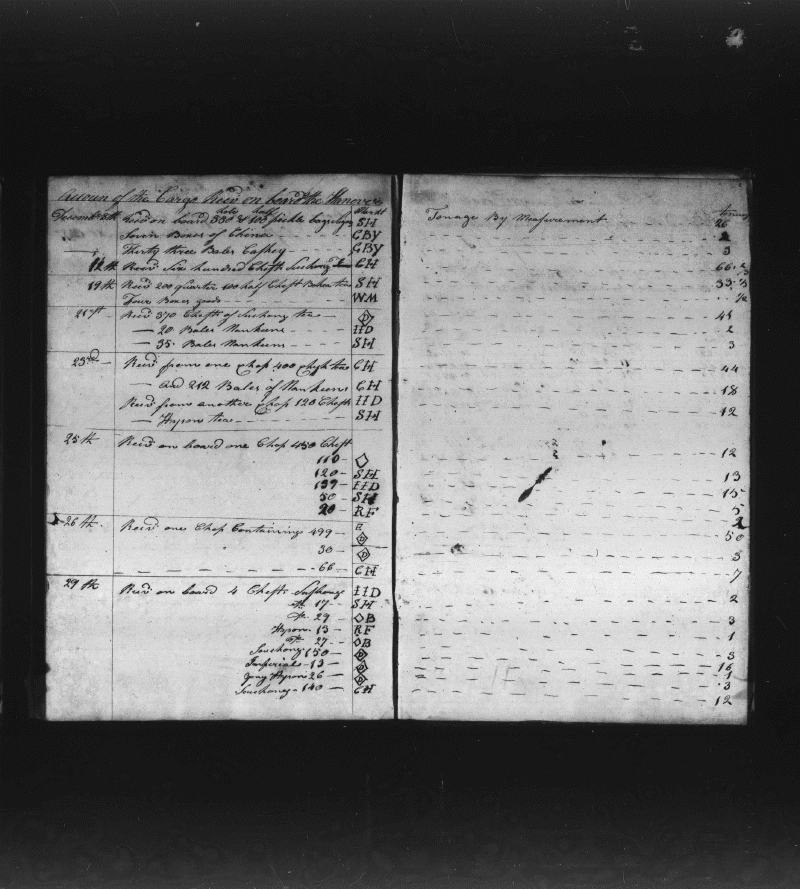 Accoun of the Cargo Recd on board the Hanover
Decemb 8th Recd on board 330 hole & 100 half Marks
SH
Seven Boxes of China - - - - CBY
Thirty three Bales - - - - CBY
14th Recd Six hundred Chests Suchong CH
19th Recd 200 quarter 100 half Chest Bohea tea SH
Four Boxes goods - - - - WM
21st Recd 370 Chests of Suchong tea - D
- 20 Bales Nankeens - - - - HD
- 35 Bales Nankeens - - - - SH
23rd Recd from one Chop 400 tea CH
- and 212 Bales of Nankeens CH
Recd from another Chop 120 Chests HD
- Hyson tea - - - - SH
25th Recd on board one Chop 450 Chest
110 - ◇
120 - SH
139 - HD
50 - SH
20 - RF
26th Recd one Chop Containing 499 - D
30 - D
66 - CH
29th Recd on board 4 Chests HD
17 - SH
29 - ◇B
Hyson 13 - RF
27 - ◇B
Souchong 150 - D
Imperial - 13 - D
Yong Hyson 26 - D
Souchong - 140 - CH
Tonage By Measurement
26
2
3
66.2
33.3
1/2
41
2
3
44
18
12
2
2
12
13
15
5
2
50
3
7
2
3
1
3
16
1
3
12